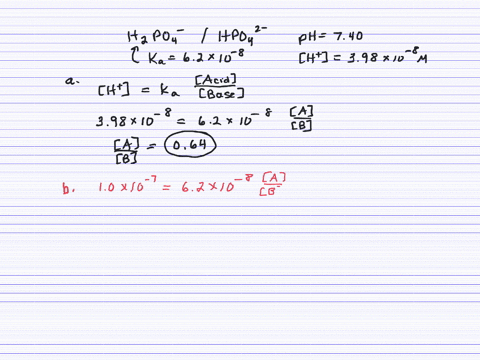 H₂PO₄⁻ / HPO₄²⁻ pH = 7.40
Ka = 6.2 × 10⁻⁸ [H⁺] = 3.98 × 10⁻⁸ M
a. [H⁺] = Ka [Acid]/[Base]
3.98 × 10⁻⁸ = 6.2 × 10⁻⁸ [A]/[B]
[A]/[B] = 0.64
b. 1.0 × 10⁻⁷ = 6.2 × 10⁻⁸ [A]/[B